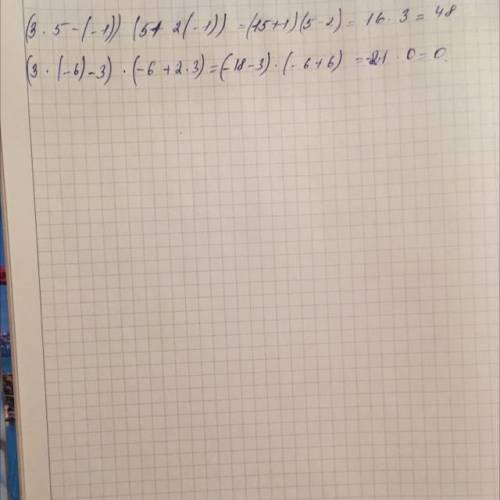 (3 · 5 - (-1)) (5 + 2(-1)) = (15 + 1)(5 - 2) = 16 · 3 = 48
(3 · (-6) - 3) · (-6 + 2 · 3) = (-18 - 3) · (-6 + 6) = -21 · 0 = 0